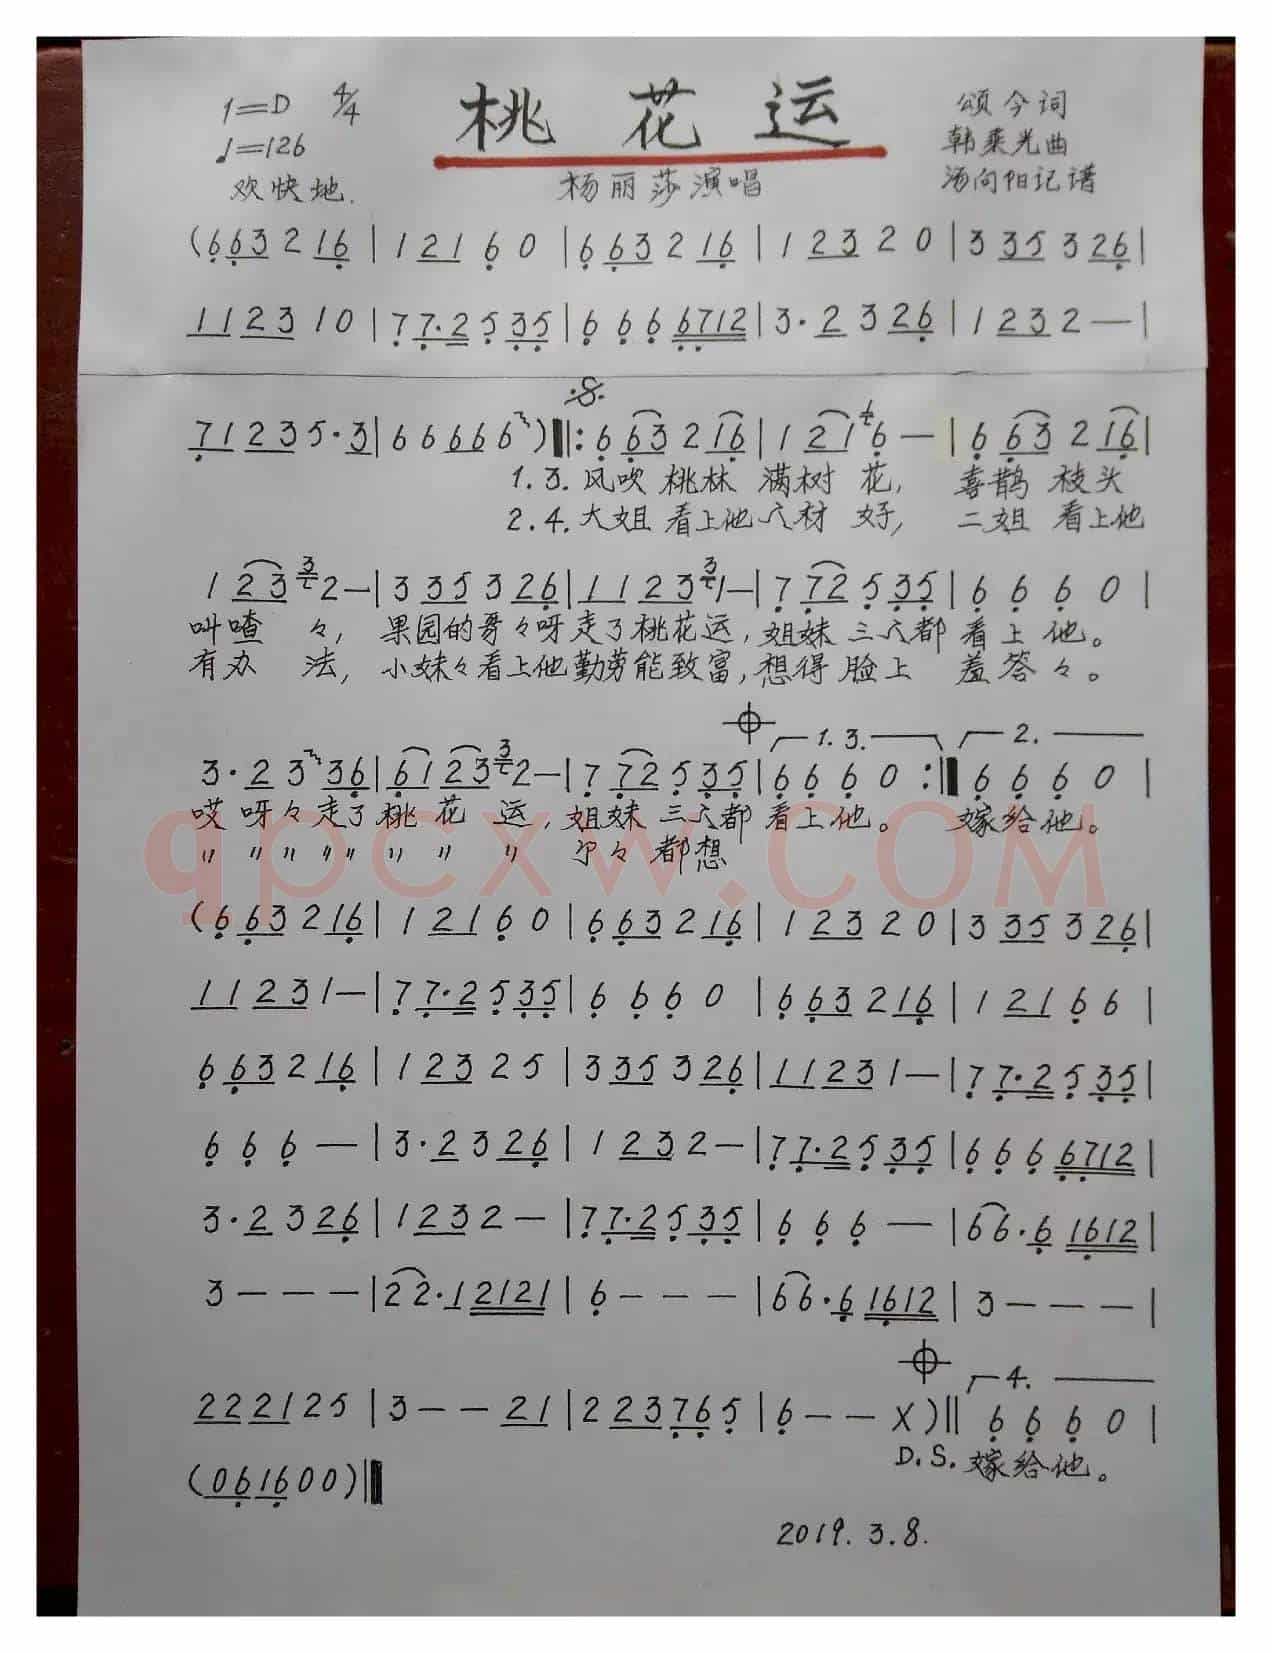 1=D 4/4
♩=126
欢快地.
桃花运
杨丽莎演唱
颂今词
韩乘光曲
汤向阳记谱
(6 6 3 2 1 6 | 1 2 1 6 0 | 6 6 3 2 1 6 | 1 2 3 2 0 | 3 3 5 3 2 6 |
1 1 2 3 1 0 | 7 7· 2 5 3 5 | 6 6 6 6 7 1 2 | 3· 2 3 2 6 | 1 2 3 2 — |
7 1 2 3 5· 3 | 6 6 6 6 6 6 ) ‖: 6 6 3 2 1 6 | 1 2 1 6 — | 6 6 3 2 1 6 |
1. 3. 风吹 桃林 满树 花, 喜鹊 枝头
2. 4. 大姐 看上他 人材 好, 二姐 看上他
1 2 3 3 2 — | 3 3 5 3 2 6 | 1 1 2 3 3 1 — | 7 7 2 5 3 5 | 6 6 6 0 |
叫喳 々, 果园的哥々呀走了桃花运, 姐妹 三人都 看上 他。
有办 法, 小妹々看上他勤劳能致富, 想得 脸上 羞答々。
1. 3. 2.
3· 2 3 3 6 | 6 1 2 3 3 2 — | 7 7 2 5 3 5 | 6 6 6 0 :‖ 6 6 6 0 |
哎 呀々走了 桃 花 运, 姐妹 三人都 看上他。 嫁给他。
〃 〃〃 〃〃 〃 〃 〃 个々 都想
qpcxw.COM
(6 6 3 2 1 6 | 1 2 1 6 0 | 6 6 3 2 1 6 | 1 2 3 2 0 | 3 3 5 3 2 6 |
1 1 2 3 1 — | 7 7· 2 5 3 5 | 6 6 6 0 | 6 6 3 2 1 6 | 1 2 1 6 6 |
6 6 3 2 1 6 | 1 2 3 2 5 | 3 3 5 3 2 6 | 1 1 2 3 1 — | 7 7· 2 5 3 5 |
6 6 6 — | 3· 2 3 2 6 | 1 2 3 2 — | 7 7· 2 5 3 5 | 6 6 6 6 7 1 2 |
3· 2 3 2 6 | 1 2 3 2 — | 7 7· 2 5 3 5 | 6 6 6 — | 6 6· 6 1 6 1 2 |
3 — — — | 2 2· 1 2 1 2 1 | 6 — — — | 6 6· 6 1 6 1 2 | 3 — — — |
4.
2 2 2 1 2 5 | 3 — — 2 1 | 2 2 3 7 6 5 | 6 — — X ) ‖ 6 6 6 0 |
D.S. 嫁给他。
(0 6 1 6 0 0) ‖
2019. 3. 8.